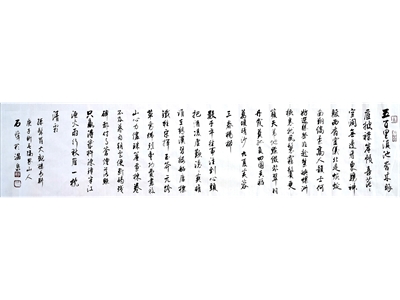 五百里滇池奔來眼
底披襟岸幘喜茫茫
空闊無邊看東驤神
駿西翥靈儀北走蜿蜒
南翔縞素高人韻士何
妨選勝登臨趁蟹嶼螺洲
梳裹就風鬟霧鬢更
蘋天葦地點綴些翠羽
丹霞莫孤負四圍香稻
萬頃晴沙九夏芙蓉
三春楊柳
數千年往事注到心頭
把酒凌虛歎滾滾英雄
誰在想漢習樓船唐標
鐵柱宋揮玉斧元跨
革囊偉烈豐功費盡移
山心力儘珠簾畫棟卷
不及暮雨朝雲便斷碣殘
碑都付與蒼煙落照
只贏得幾杵疏鐘半江
漁火兩行秋雁一枕
清霜
孫髯翁大觀樓長聯
山人